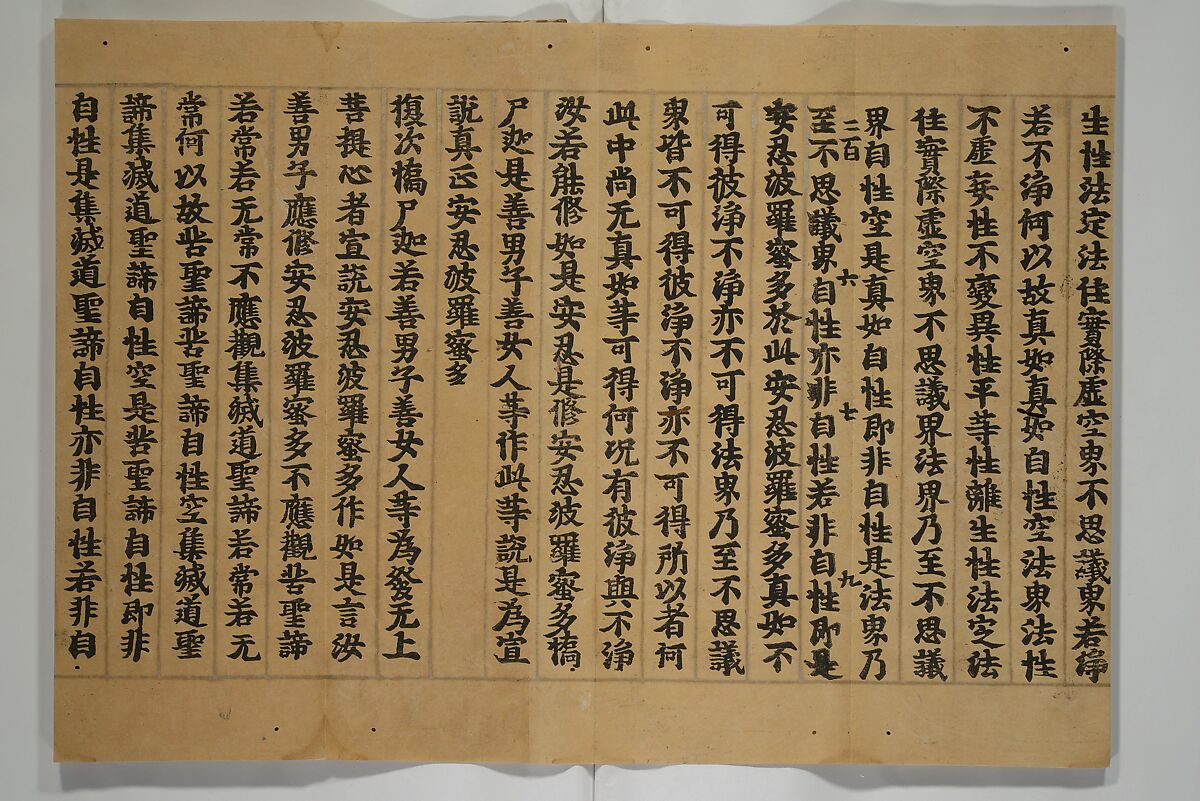 生性法定法住實際虛空界不思議界若淨
若不淨何以故真如真如自性空法界法性
不虛妄性不變異性平等性離生性法定法
住實際虛空界不思議界法界乃至不思議
界自性空是真如自性即非自性是法界乃
二百 六 七 九
至不思議界自性亦非自性若非自性即是
安忍波羅蜜多於此安忍波羅蜜多真如不
可得彼淨不淨亦不可得法界乃至不思議
界皆不可得彼淨不淨亦不可得所以者何
此中尚无真如等可得何況有彼淨與不淨
汝若能修如是安忍是修安忍波羅蜜多憍
尸迦是善男子善女人等作此等說是為宣
說真正安忍波羅蜜多
復次憍尸迦若善男子善女人等為發无上
菩提心者宣說安忍波羅蜜多作如是言汝
善男子應修安忍波羅蜜多不應觀苦聖諦
若常若无常不應觀集滅道聖諦若常若无
常何以故苦聖諦苦聖諦自性空集滅道聖
諦集滅道聖諦自性空是苦聖諦自性即非
自性是集滅道聖諦自性亦非自性若非自